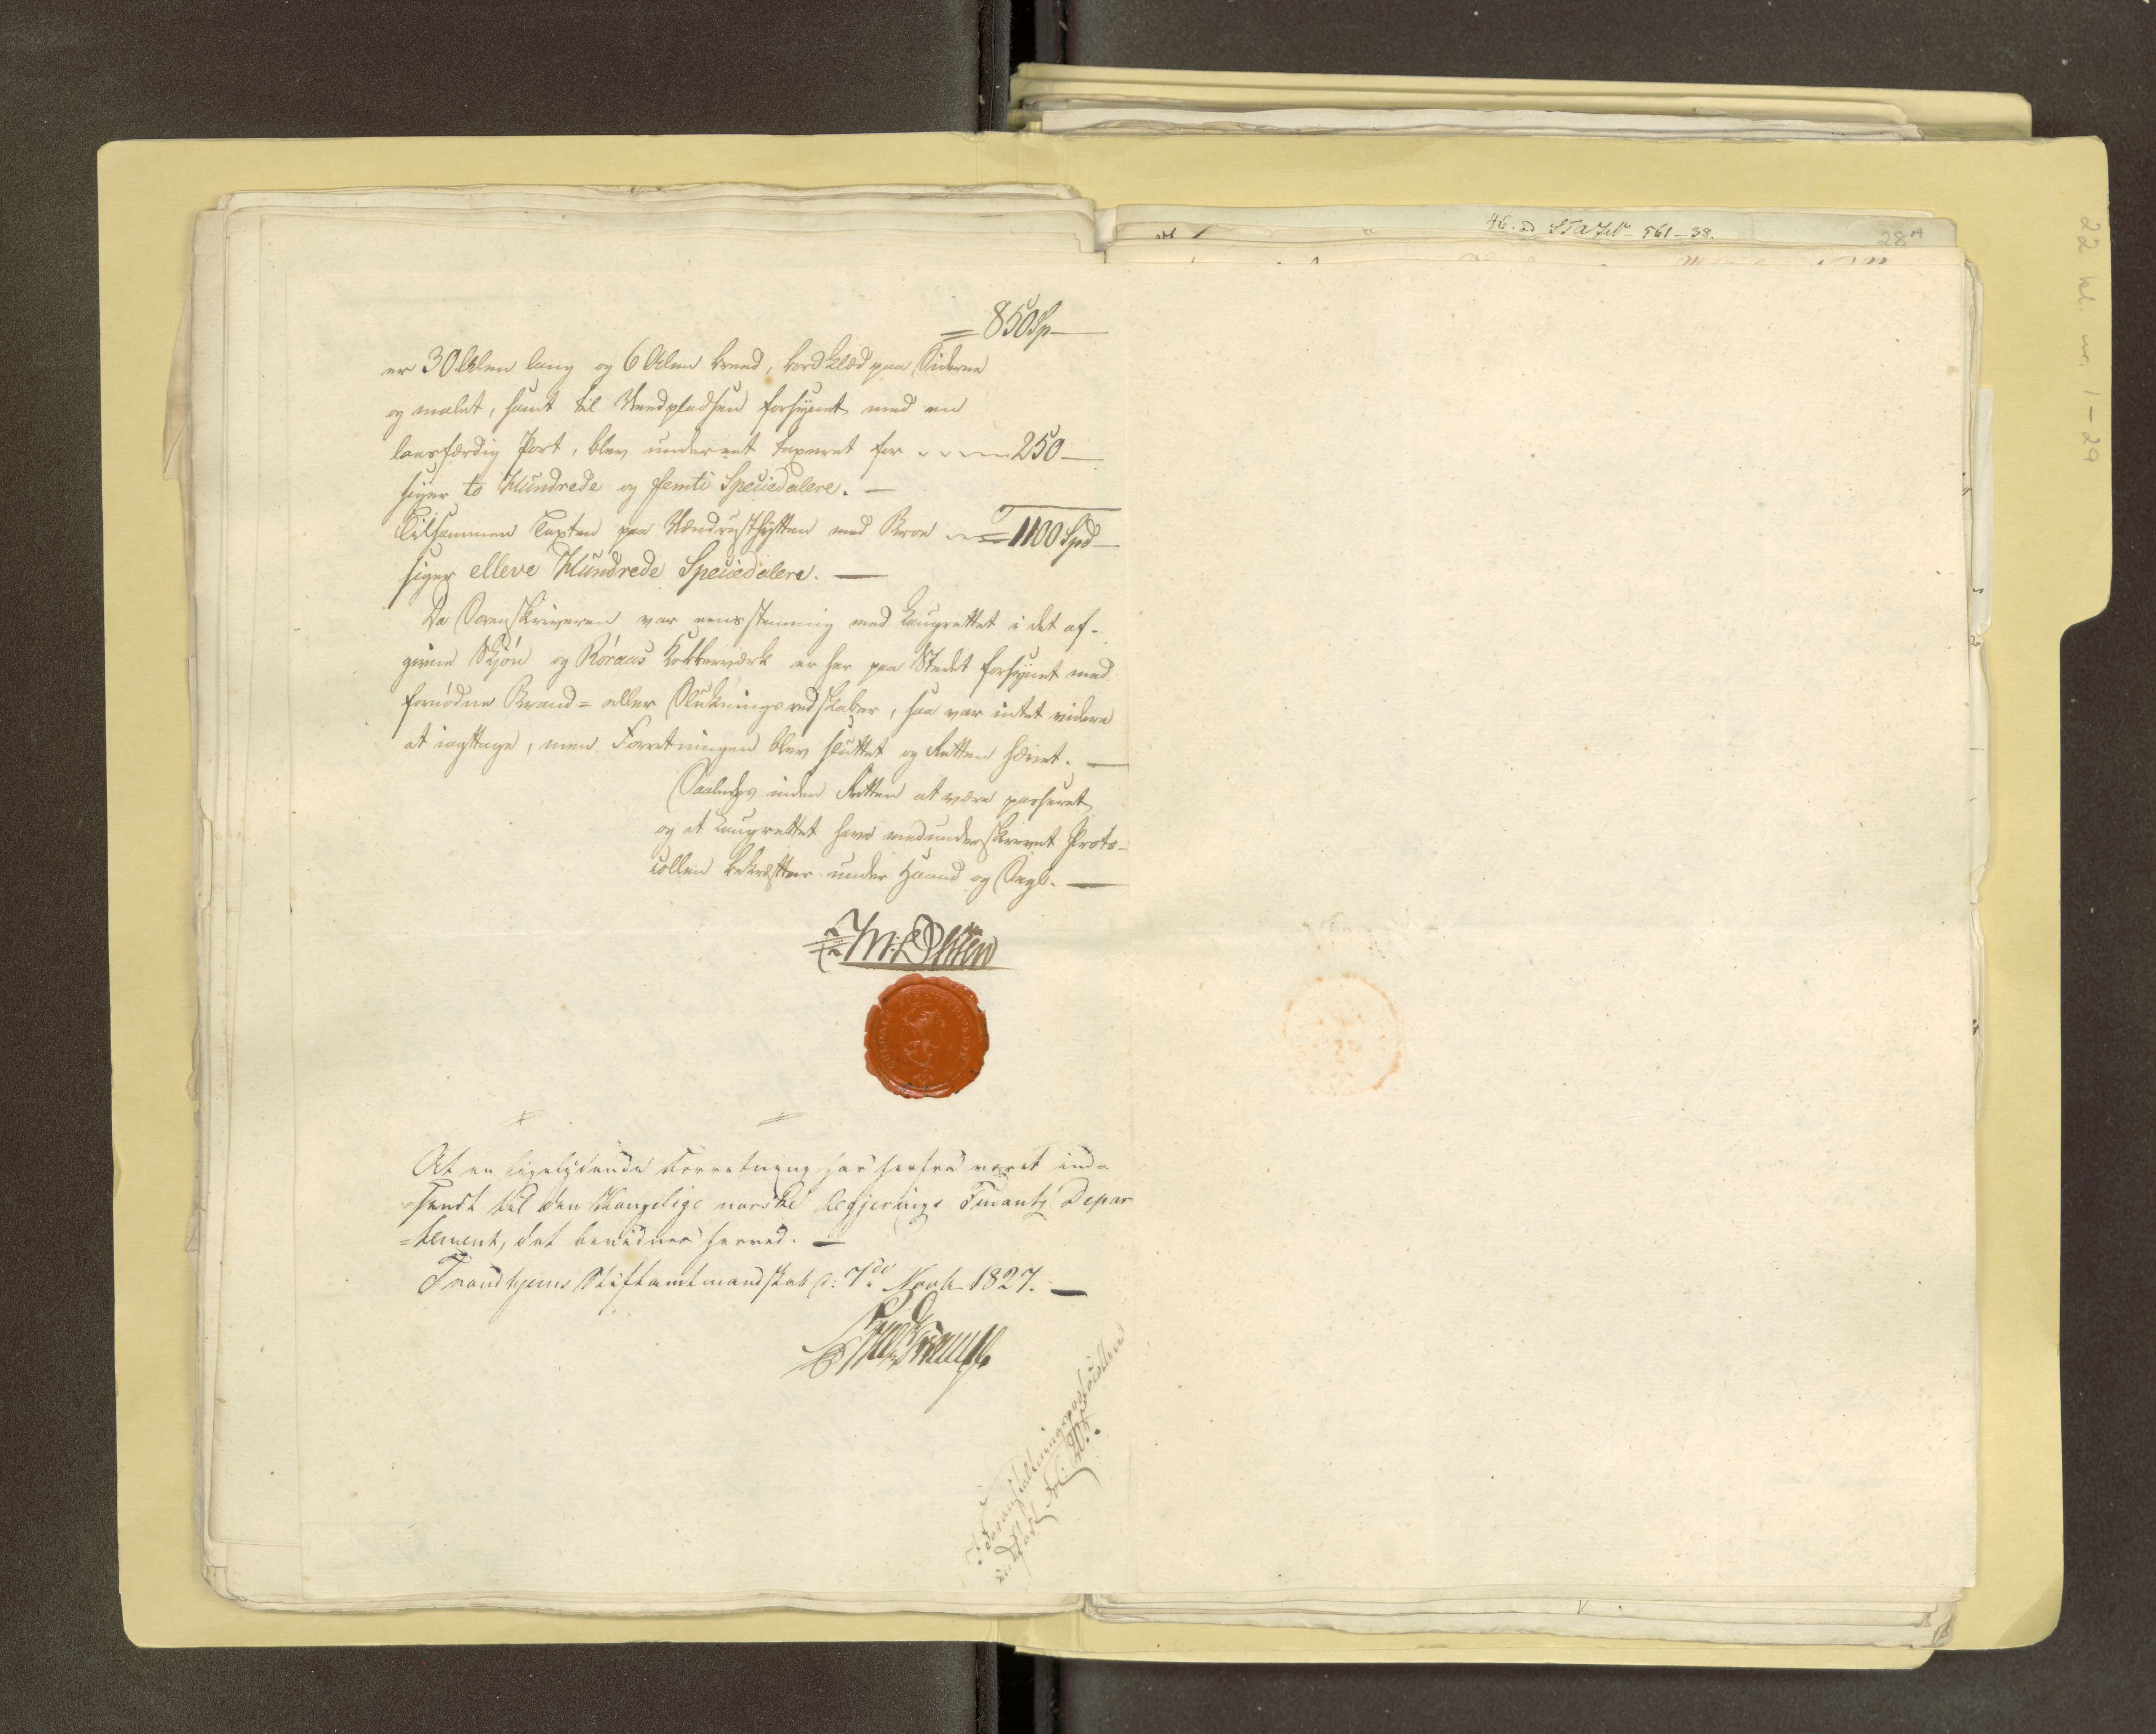 = 850 Sp
er 30 Alen lang og 6 Alen breed, bordklæd paa Siderne
og malet, samt til Veedpladsen forsynet med en
laasfærdig Port, blev undereet taxeret for 250
siger to Hundrede og femti Speciedalere. —
Tilsammen Taxten paa Vændrosthytten med Broe = 1100 Spd
siger elleve Hundrede Speciedalere. —
Da Sorenskriveren var eensstemmig med Laugrettet i det af-
givne Skjön og Röraas Kobberværk er her paa Stedet forsynet med
fornödne Brand= eller Slukningsredskaber, saa var intet videre
at iagttage, men Forretningen blev sluttet og Retten hævet. —
Saaledes inden Retten at være passeret
og at Laugrettet have medunderskrevet Proto-
collen bekræftes under Haand og Segl. —
At en ligelydende Forretning har herfra været ind=
=sendt til den Kongelige norske Regjerings Finantz Depar
=tement, det bevidnes herved. —
Trondhjems Stiftamtmandskab d: 7de Novbr 1827. —
I Brandforsikringsprotocollen
indført Fol:
46. ad STaJrN 561-38.
28A
22 kl. nr. 1-29